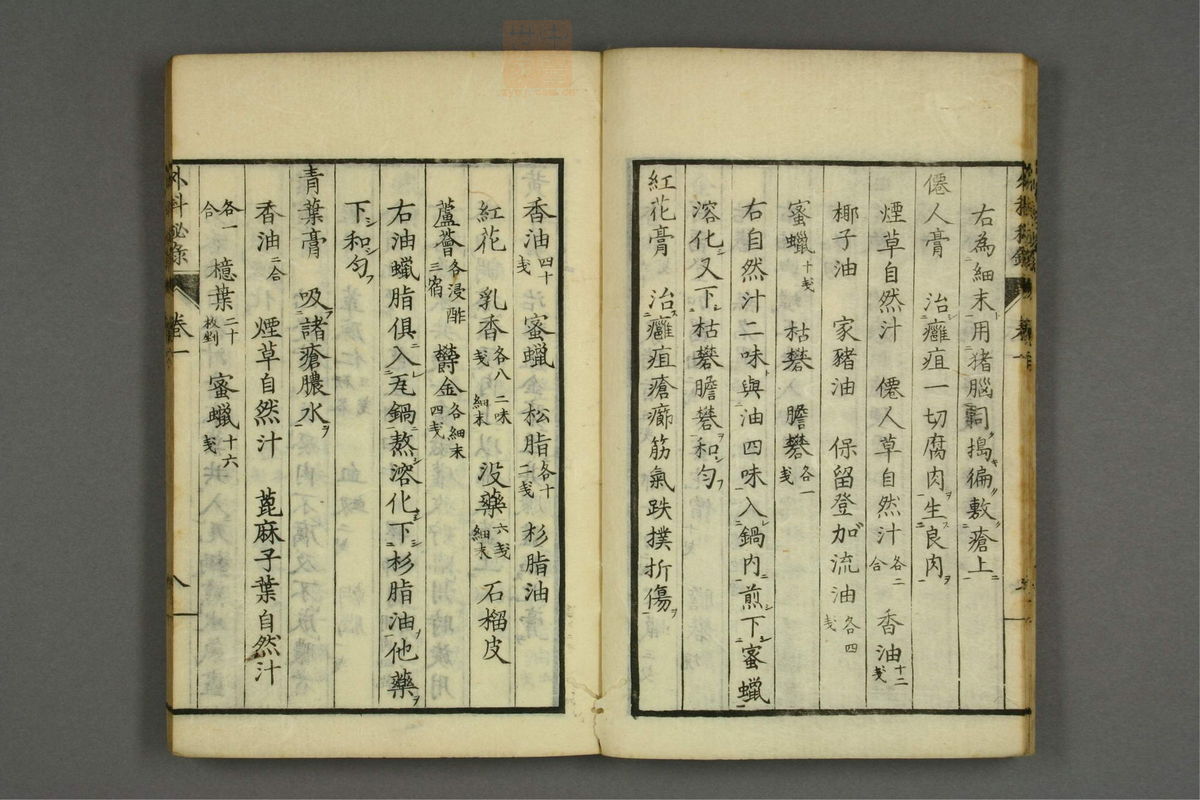 右為細末ト用猪腦同搗徧敷瘡上
僊人膏 治癰疽一切腐肉生良肉
煙草自然汁 僊人草自然汁各二合 香油十二戔
椰子油 家豬油 保留登加流油各四戔
蜜蠟十戔 枯礬 膽礬各一戔
右自然汁二味與油四味入鍋内煎下蜜蠟
溶化又下枯礬膽礬和匀
紅花膏 治癰疽瘡癤筋氣跌撲折傷
香油四十戔 蜜蠟 松脂各十二戔 杉脂油
紅花 乳香各八戔 二味細末 没藥六戔細末 石榴皮
蘆薈各浸酢三宿 欝金各細末四戔
右油蠟脂俱入瓦鍋熬溶化下杉脂油他藥
下和匀
青葉膏 吸諸瘡膿水
香油二合 煙草自然汁 蓖麻子葉自然汁
各一合 檍葉二十枚剉 蜜蠟十六戔
外科秘录 卷一 八